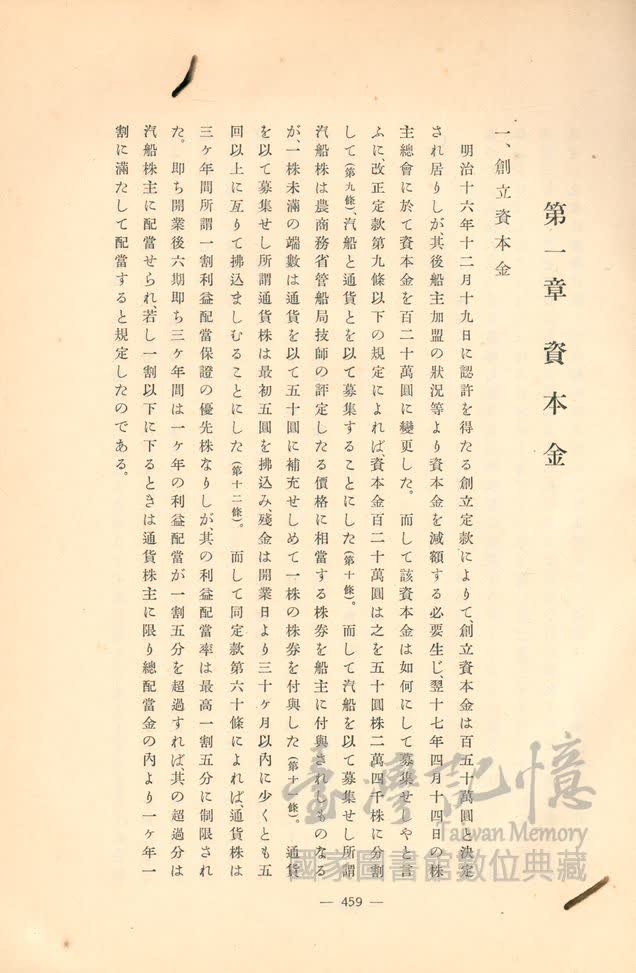 第一章　資本金
一、創立資本金
明治十六年十二月十九日に認許を得たる創立定款によりて、創立資本金は百五十萬圓と決定
され居りしが、其後船主加盟の狀況等より資本金を減額する必要生じ、翌十七年四月十四日の株
主總會に於て資本金を百二十萬圓に變更した。　而して該資本金は如何にして募集せしやと言
ふに改正定款第九條以下の規定によれば、資本金百二十萬圓は之を五十圓株二萬四千株に分割
して（第九條）、汽船と通貨とを以て募集することにした（第十條）。　而して汽船を以て募集せし所謂
汽船株は農商務省管船局技師の評定したる價格に相當する株券を船主に付與されしものなる
が、一株未滿の端數は通貨を以て五十圓に補充せしめて一株の株券を付與した（第十一條）。　通貨
を以て募集せし所謂通貨株は最初五圓を拂込み、殘金は開業日より三十ヶ月以內に少くとも五
回以上に亙りて拂込ましむることにした（第十二條）。　而して同定款第六十條によれば、通貨株は
三ヶ年間所謂一割利益配當保證の優先株なりしが、其の利益配當率は最高一割五分に制限され
た。　即ち開業後六期即ち三ヶ年間は一ヶ年の利益配當が一割五分を超過すれば、其の超過分は
汽船株主に配當せられ、若し一割以下に下るときは通貨株主に限り總配當金の內より一ヶ年一
割に滿たして配當すると規定したのである。
臺灣記憶
Taiwan Memory
國家圖書館數位典藏
— 459 —